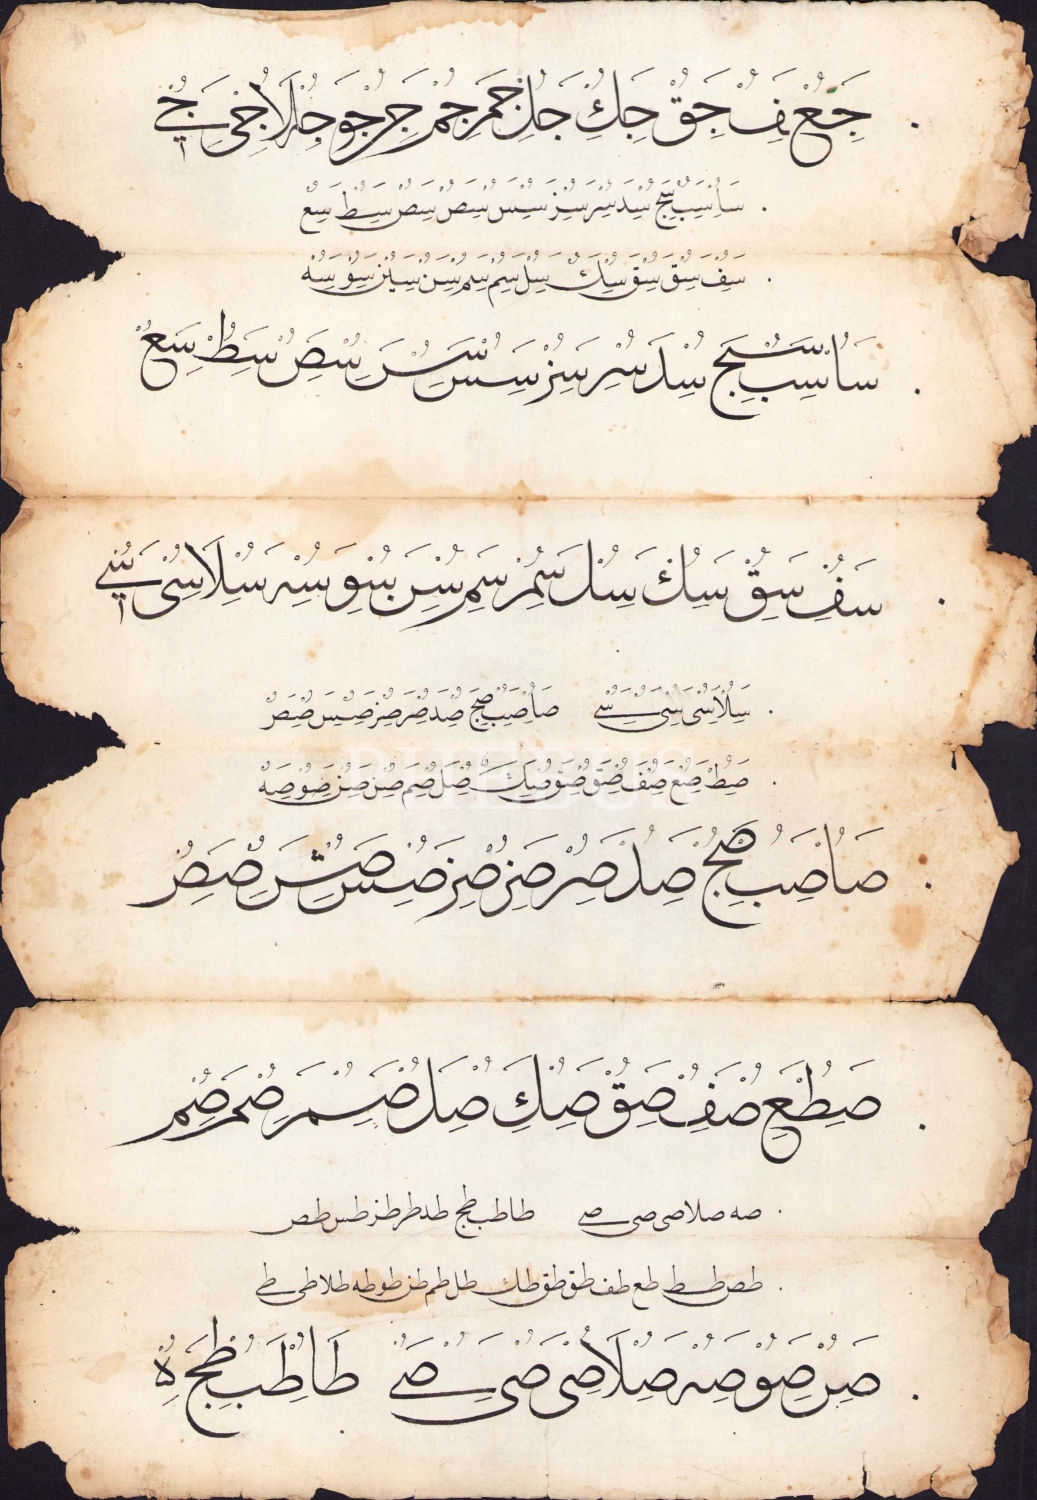 جع جف جق جك جل جم جم جر جو جه جلا جى جے
سا سب سج سد سر سز سس سص سص سط سع
سف سق سق سك سل سم سم سن سين سو سه
سا سب سج سد سر سز سس سس سص سط سع
سف سق سك سل سم سم سن سو سه سلا سى سے
سلا سى سى سے صا صب صج صد صر صز صس صص
صط صع صف صق صق صك صل صم صن صن صو صه
صا صب صج صد صر صز صز صس صس صص
صط صع صف صق صك صل صم صم صم
صه صلا صى صى صے طا طب طج طد طر طز طس طص
طص طط طع طف طق طق طك طل طم طن طو طه طلا طى طے
صن صو صه صلا صى صى صے طا طب طج ه